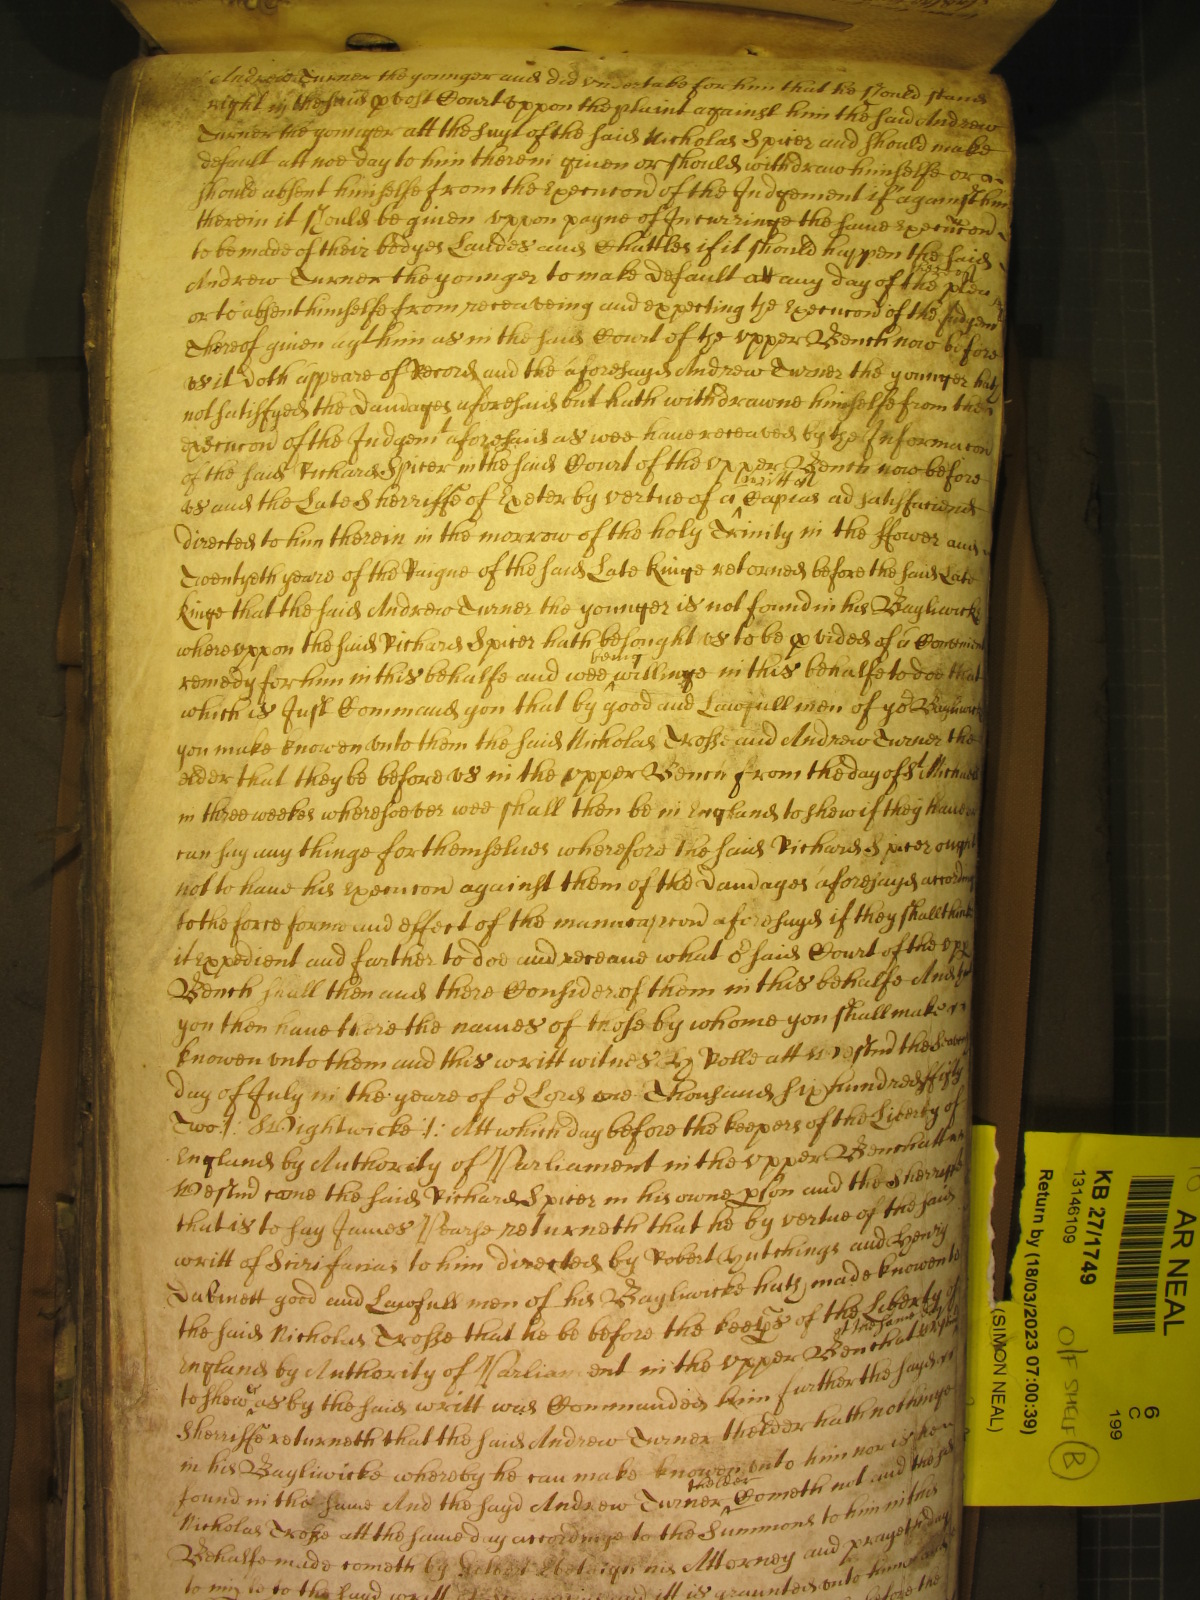 Andrew Turner the younger and did undertake for him that he should stand
right in the said pvost Court uppon the plaint against him the said Andrew
Turner the younger att the suyt of the said Nicholas Spicer and should make
default att noe day to him therein given or should withdraw himselfe or
should absent himselfe from the Execucon of the Judgement if against him
therein it should be given uppon payne of Incurringe the same Execucon
to be made of their bodyes Landes and Chattles if it should happen the said
Andrew Turner the younger to make default att any day of the plea
or to absent himselfe from receaveing and expecting the Execucon of the Judgemt
thereof given agt him as in the said Court of the upper Bench now before
us it doth appeare of Record and the aforesayd Andrew Turner the younger hath
not satisfyed the Damages aforesaid but hath withdrawne himselfe from the
execucon of the Judgemt aforesaid as wee have receaved by the Informacon
of the said Richard Spicer in the said Court of the upper Bench now before
us and the Late Sherriffe of Exeter by vertue of a writt of Capias ad satisfaciend
directed to him therein in the morrow of the holy Trinity in the ffower and
Twentyeth yeare of the Raigne of the said Late Kinge retorned before the said Late
Kinge that the said Andrew Turner the younger is not found in his Bayliwicke
whereuppon the said Richard Spicer hath besought us to be pvided of a Convenient
remedy for him in this behalfe and wee being willinge in this behalfe to doe that
which is Just Command you that by good and Lawfull men of yor Bayliwicke
you make knowen unto them the said Nicholas Trosse and Andrew Turner the
elder that they be before us in the upper Bench from the day of St Michael
in three weekes wheresoever wee shall then be in England to shew if they have or
can say any thinge for themselves wherefore the said Richard Spicer ought
not to have his Execucon against them of the Damages aforesayd according
to the force forme and effect of the manucapcon aforesayd if they shall thinke
it Expedient and further to doe and receave what or said Court of the upp
Bench shall then and there Consider of them in this behalfe And
you then have there the names of those by whome you shall make it
knowen unto them and this writt witnes H Rolle att Westmd the Seaventh
day of July in the yeare of or Lord one Thousand six hundred fifty
Two /: S Wightwicke /: Att which day before the keepers of the Liberty of
England by Authority of Parliament in the upper Bench att
Westmd came the said Richard Spicer in his owne pson and the Sherriffe
that is to say James Pearse returneth that he by vertue of the said
writt of Scirifacias to him directed by Robert Hutchings and Henry
good and Lawfull men of his Bayliwicke hath made knowen to
the said Nicholas Trosse that he be before the keeps of the Liberty of
England by Authority of Parliament in the upper Bench at the same
to shew as by the said writt was Commanded him further the sayd
Sherriffe returneth that the said Andrew Turner thelder hath nothinge
in his Bayliwicke whereby he can make knowen unto him nor is hee
found in the same And the sayd Andrew Turner thelder Cometh not and the sd
Nicholas Trosse att the same day accordinge to the Summons to him in this
Behalfe made cometh by his Attorney and prayeth day
to to the sayd writt and itt is graunted unto him
before the
AR NEAL
KB 27/1749
13146109
Return by (18/03/2023 07:00:39)
(SIMON NEAL)
6
C
199
O/F SHELF B